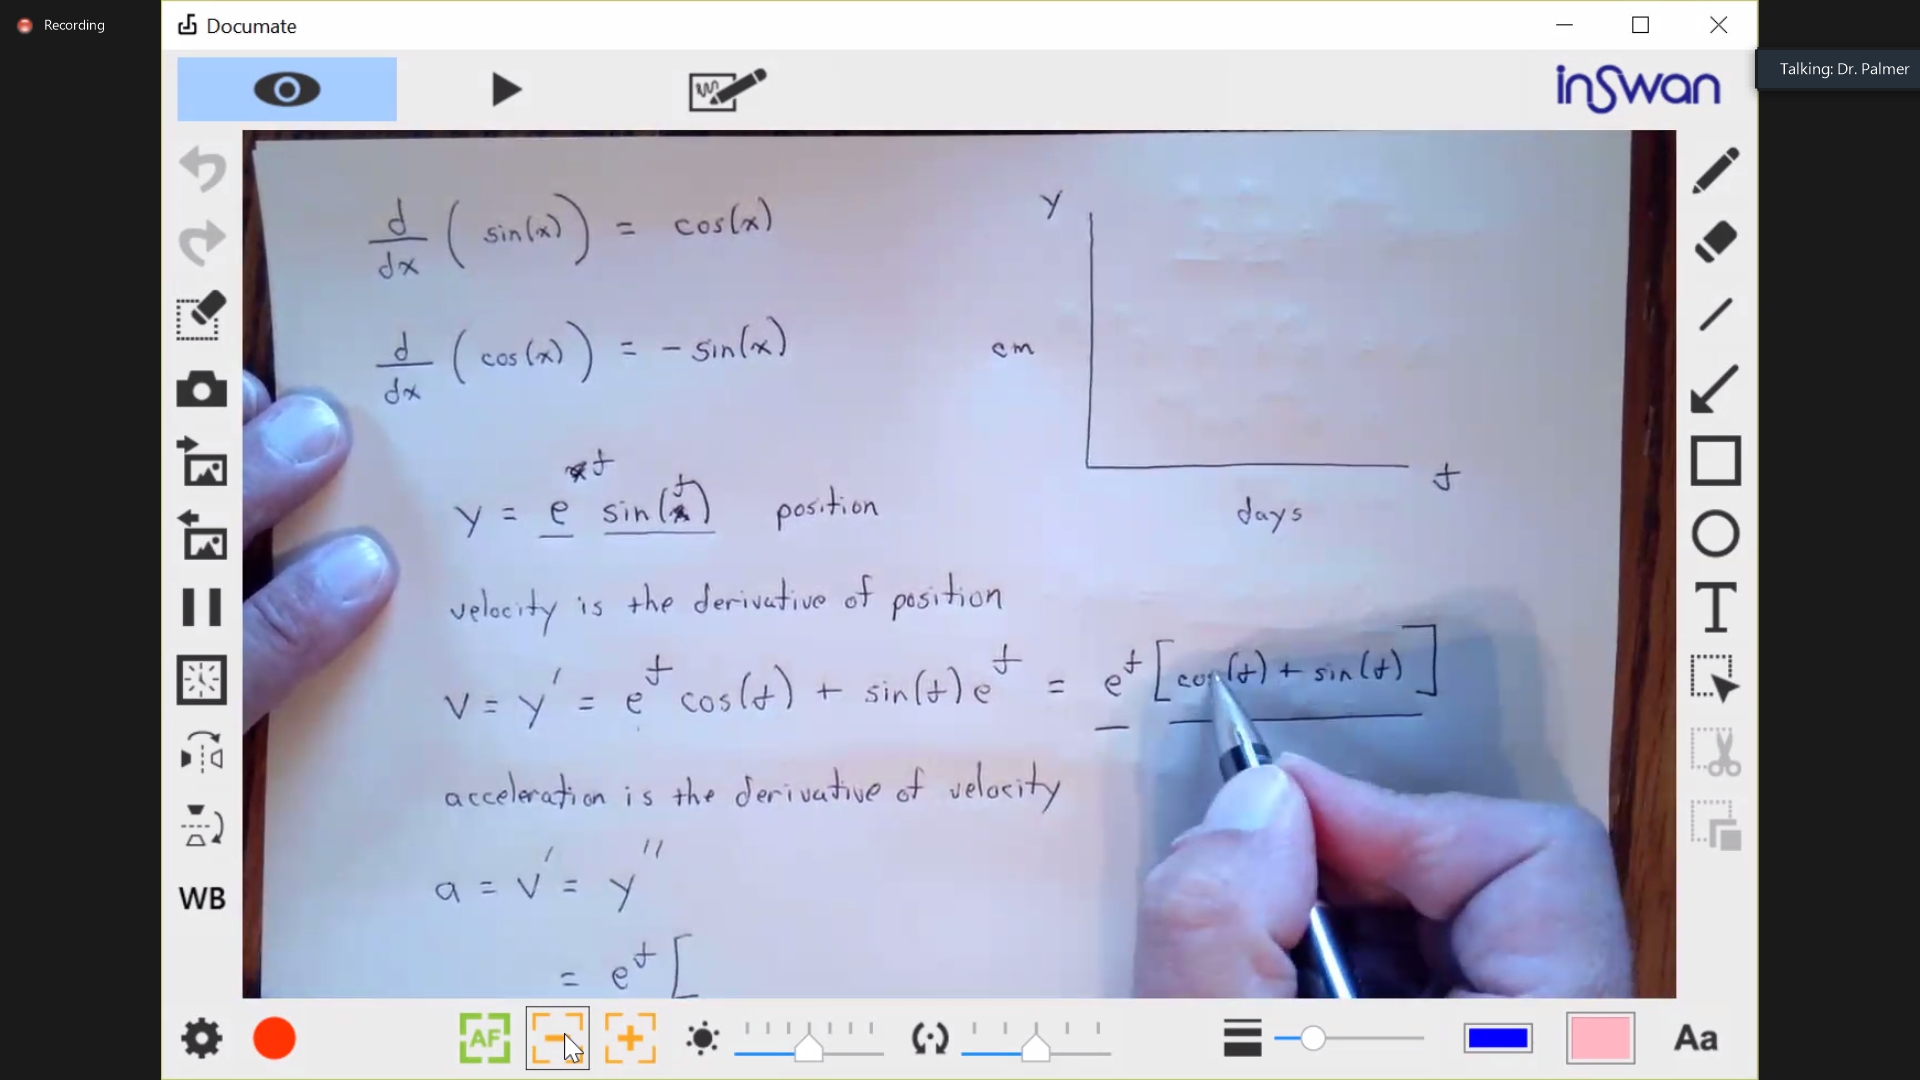 Recording
Documate
inSwan
Talking: Dr. Palmer
d/dx ( sin(x) ) = cos(x)
d/dx ( cos(x) ) = - sin(x)
y
cm
t
days
y = e^t sin(t) position
velocity is the derivative of position
v = y' = e^t cos(t) + sin(t) e^t = e^t [cos(t) + sin(t)]
acceleration is the derivative of velocity
a = v' = y''
= e^t [
WB
T
AF
Aa